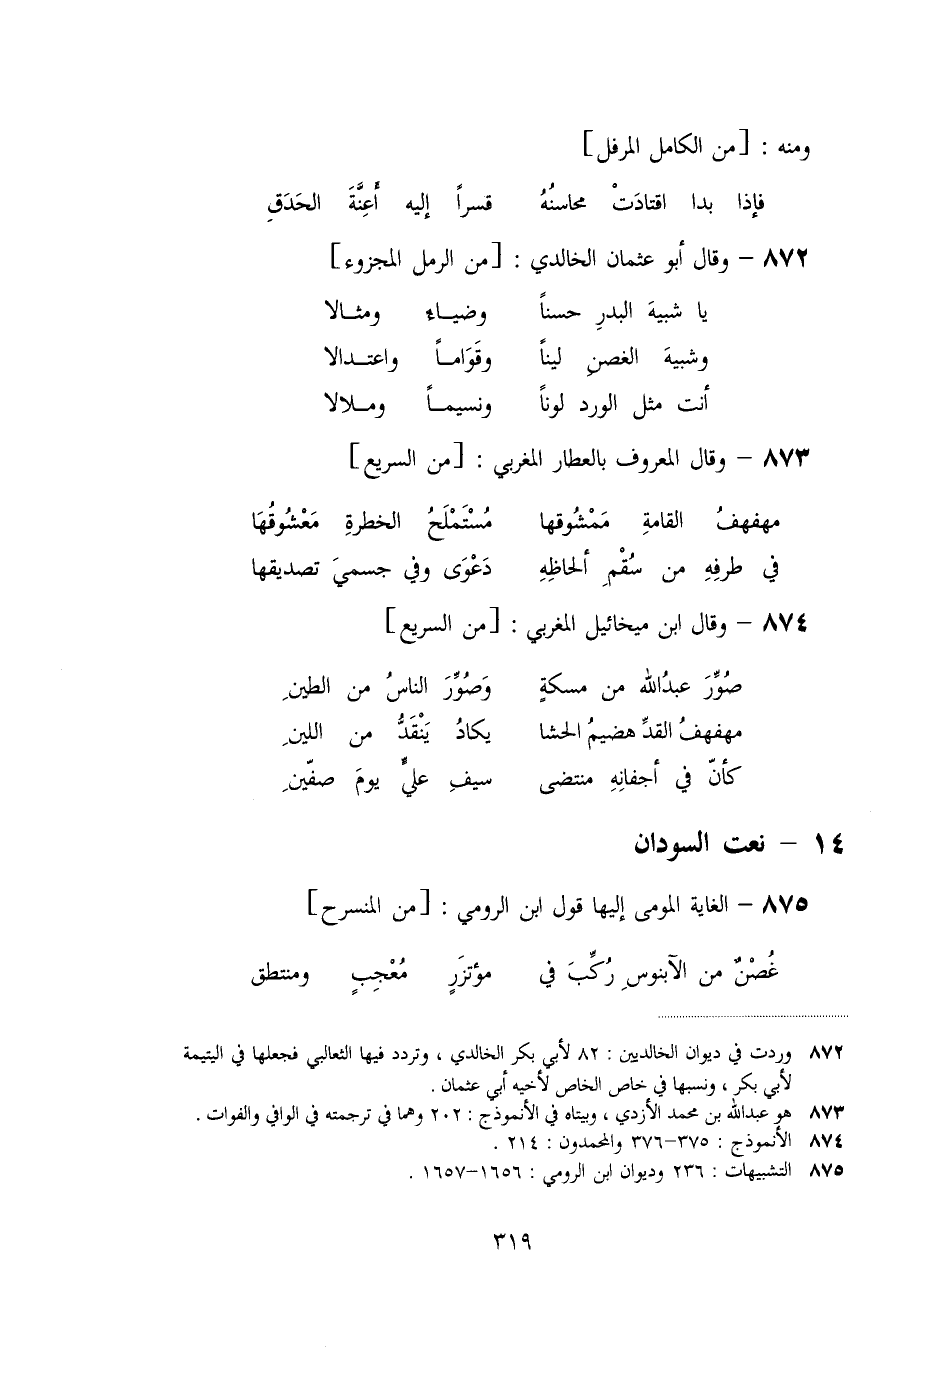 ومنه : [من الكامل المرفل]
فإذا بدا اقتادَتْ محاسنُهُ قسراً إليه أَعِنَّةَ الحَدَقِ
٨٧٢ – وقال أبو عثمان الخالدي : [من الرمل المجزوء]
يا شبيهَ البدرِ حسناً وضيـاء ومثـالا
وشبيهَ الغصنِ ليناً وقَوَامـاً واعتـدالا
أنت مثل الورد لوناً ونسيمـاً ومـلالا
٨٧٣ – وقال المعروف بالعطار المغربي : [من السريع]
مهفهفُ القامةِ مَمْشُوقها مُسْتَمْلَحُ الخطرةِ مَعْشُوقُهَا
في طرفِهِ من سُقْمِ ألحاظِهِ دَعْوَى وفي جسميَ تصديقها
٨٧٤ – وقال ابن ميخائيل المغربي : [من السريع]
صُوِّرَ عبدُالله من مسكةٍ وَصُوِّرَ الناسُ من الطينِ
مهفهفُ القدِّ هضيمُ الحشا يكادُ يَنْقَدُّ من اللينِ
كأنّ في أجفانِهِ منتضى سيفِ عليٍّ يومَ صفّينِ
١٤ – نعت السودان
٨٧٥ – الغاية المومى إليها قول ابن الرومي : [من المنسرح]
غُصْنٌ من الآبنوسِ رُكِّبَ في مؤتزَرٍ مُعْجِبٍ ومنتطق
٨٧٢ وردت في ديوان الخالديين : ٨٢ لأبي بكر الخالدي ، وتردد فيها الثعالبي فجعلها في اليتيمة
لأبي بكر ، ونسبها في خاص الخاص لأخيه أبي عثمان .
٨٧٣ هو عبدالله بن محمد الأزدي ، وبيتاه في الأنموذج : ٢٠٢ وهما في ترجمته في الوافي والفوات .
٨٧٤ الأنموذج : ٣٧٥–٣٧٦ والمحمدون : ٢١٤ .
٨٧٥ التشبيهات : ٢٣٦ وديوان ابن الرومي : ١٦٥٦–١٦٥٧ .
٣١٩